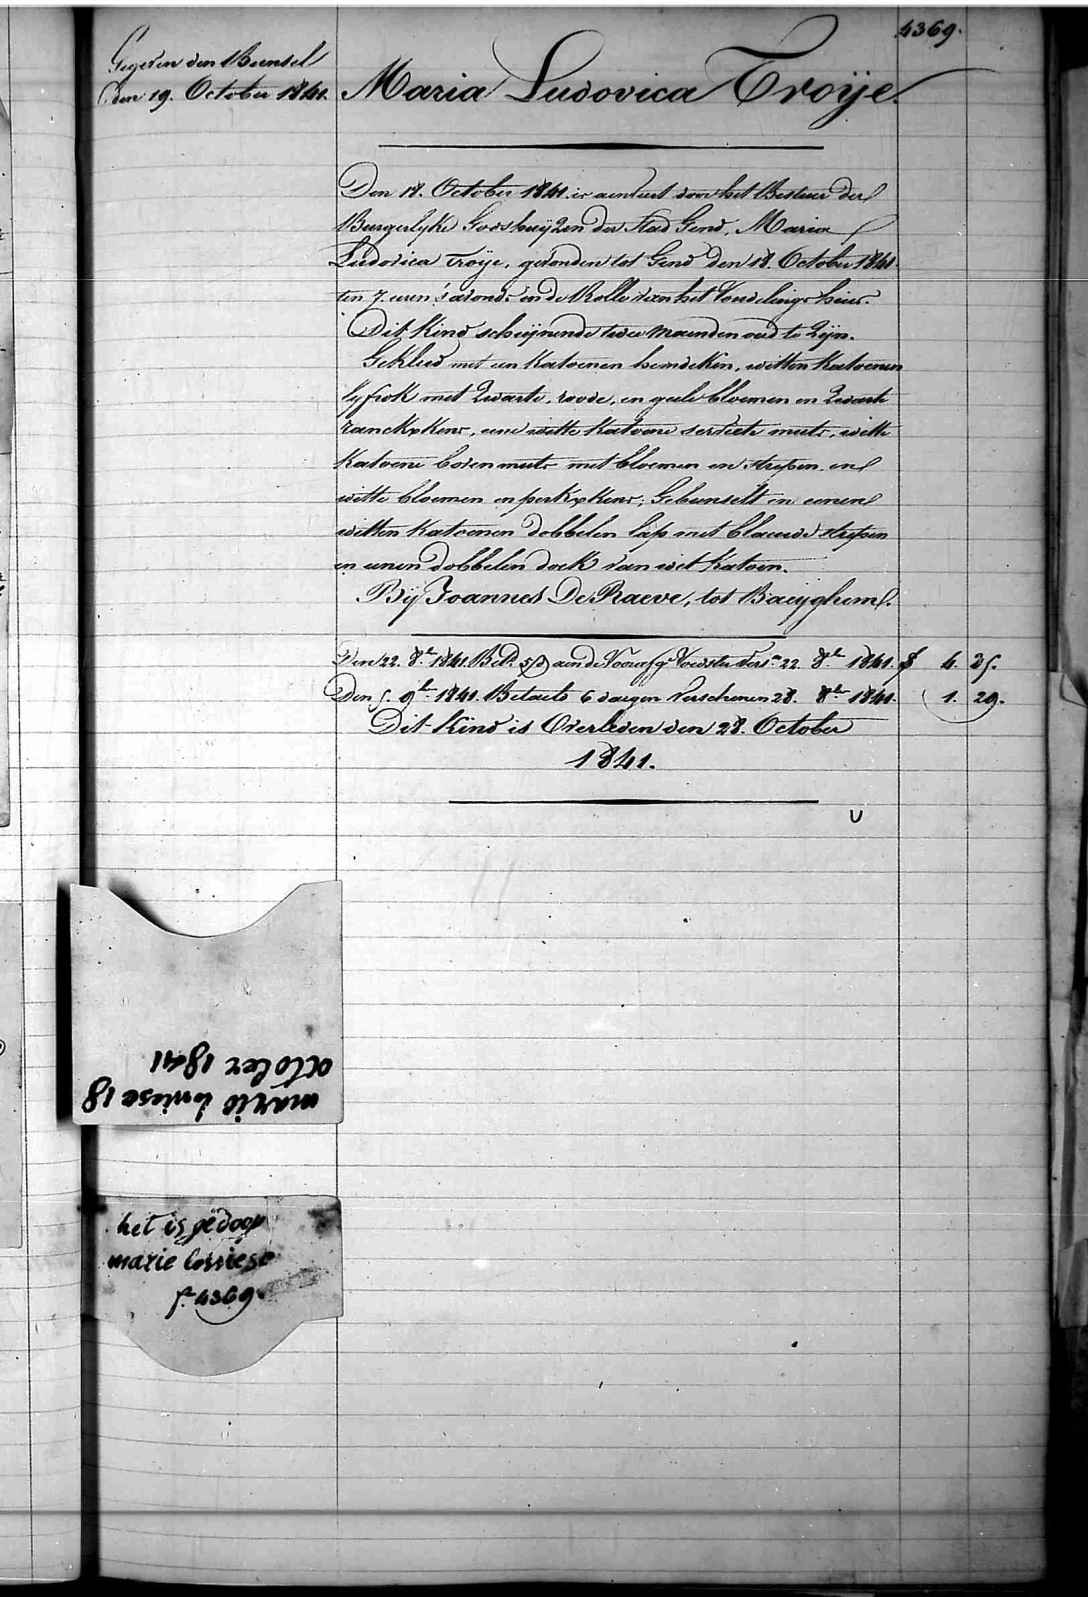 4369.
Gegeven den Bunsel
den 19. October 1841.
Maria Ludovica Troÿe.
Den 18. October 1841. is aenveert door het Bestuer der
Burgerlyke Godshuÿzen der Stad Gend, Maria
Ludovica Troÿe, gevonden tot Gend den 18. October 1841.
ten 7. uren s'avonds in de Rolle van het Vondelinge huis.
Dit Kind schÿnende twee maenden oud te Zÿn.
Gekleed met een Katoenen hemdeken, witten Katoenen
lyfrok met Zwarte, roode, en geele bloemen en Zwarte
ranckxkens, eene witte Katoene serviete muts, witte
Katoene bovenmuts met bloemen en strepen en
witte bloemen en perkxkens; Gebunselt in eenen
witten Katoenen dobbelen lap met blauwe strepen
en eenen dobbelen doek van wit Katoen.
Bÿ Joannes De Raeve, tot Baeÿghem.
Den 22. 8.e 1841. Bet. aen de Voedster Vers. 22 8.e 1841. f 4. 25.
Den 5. 9.e 1841. Betaelt 6 daegen Verschenen 28. 8.e 1841. 1. 29.
Dit Kind is Overleden den 28. October
1841.
marie louiese 18
october 1841
het is gedoop
marie lowiese
f. 4369.